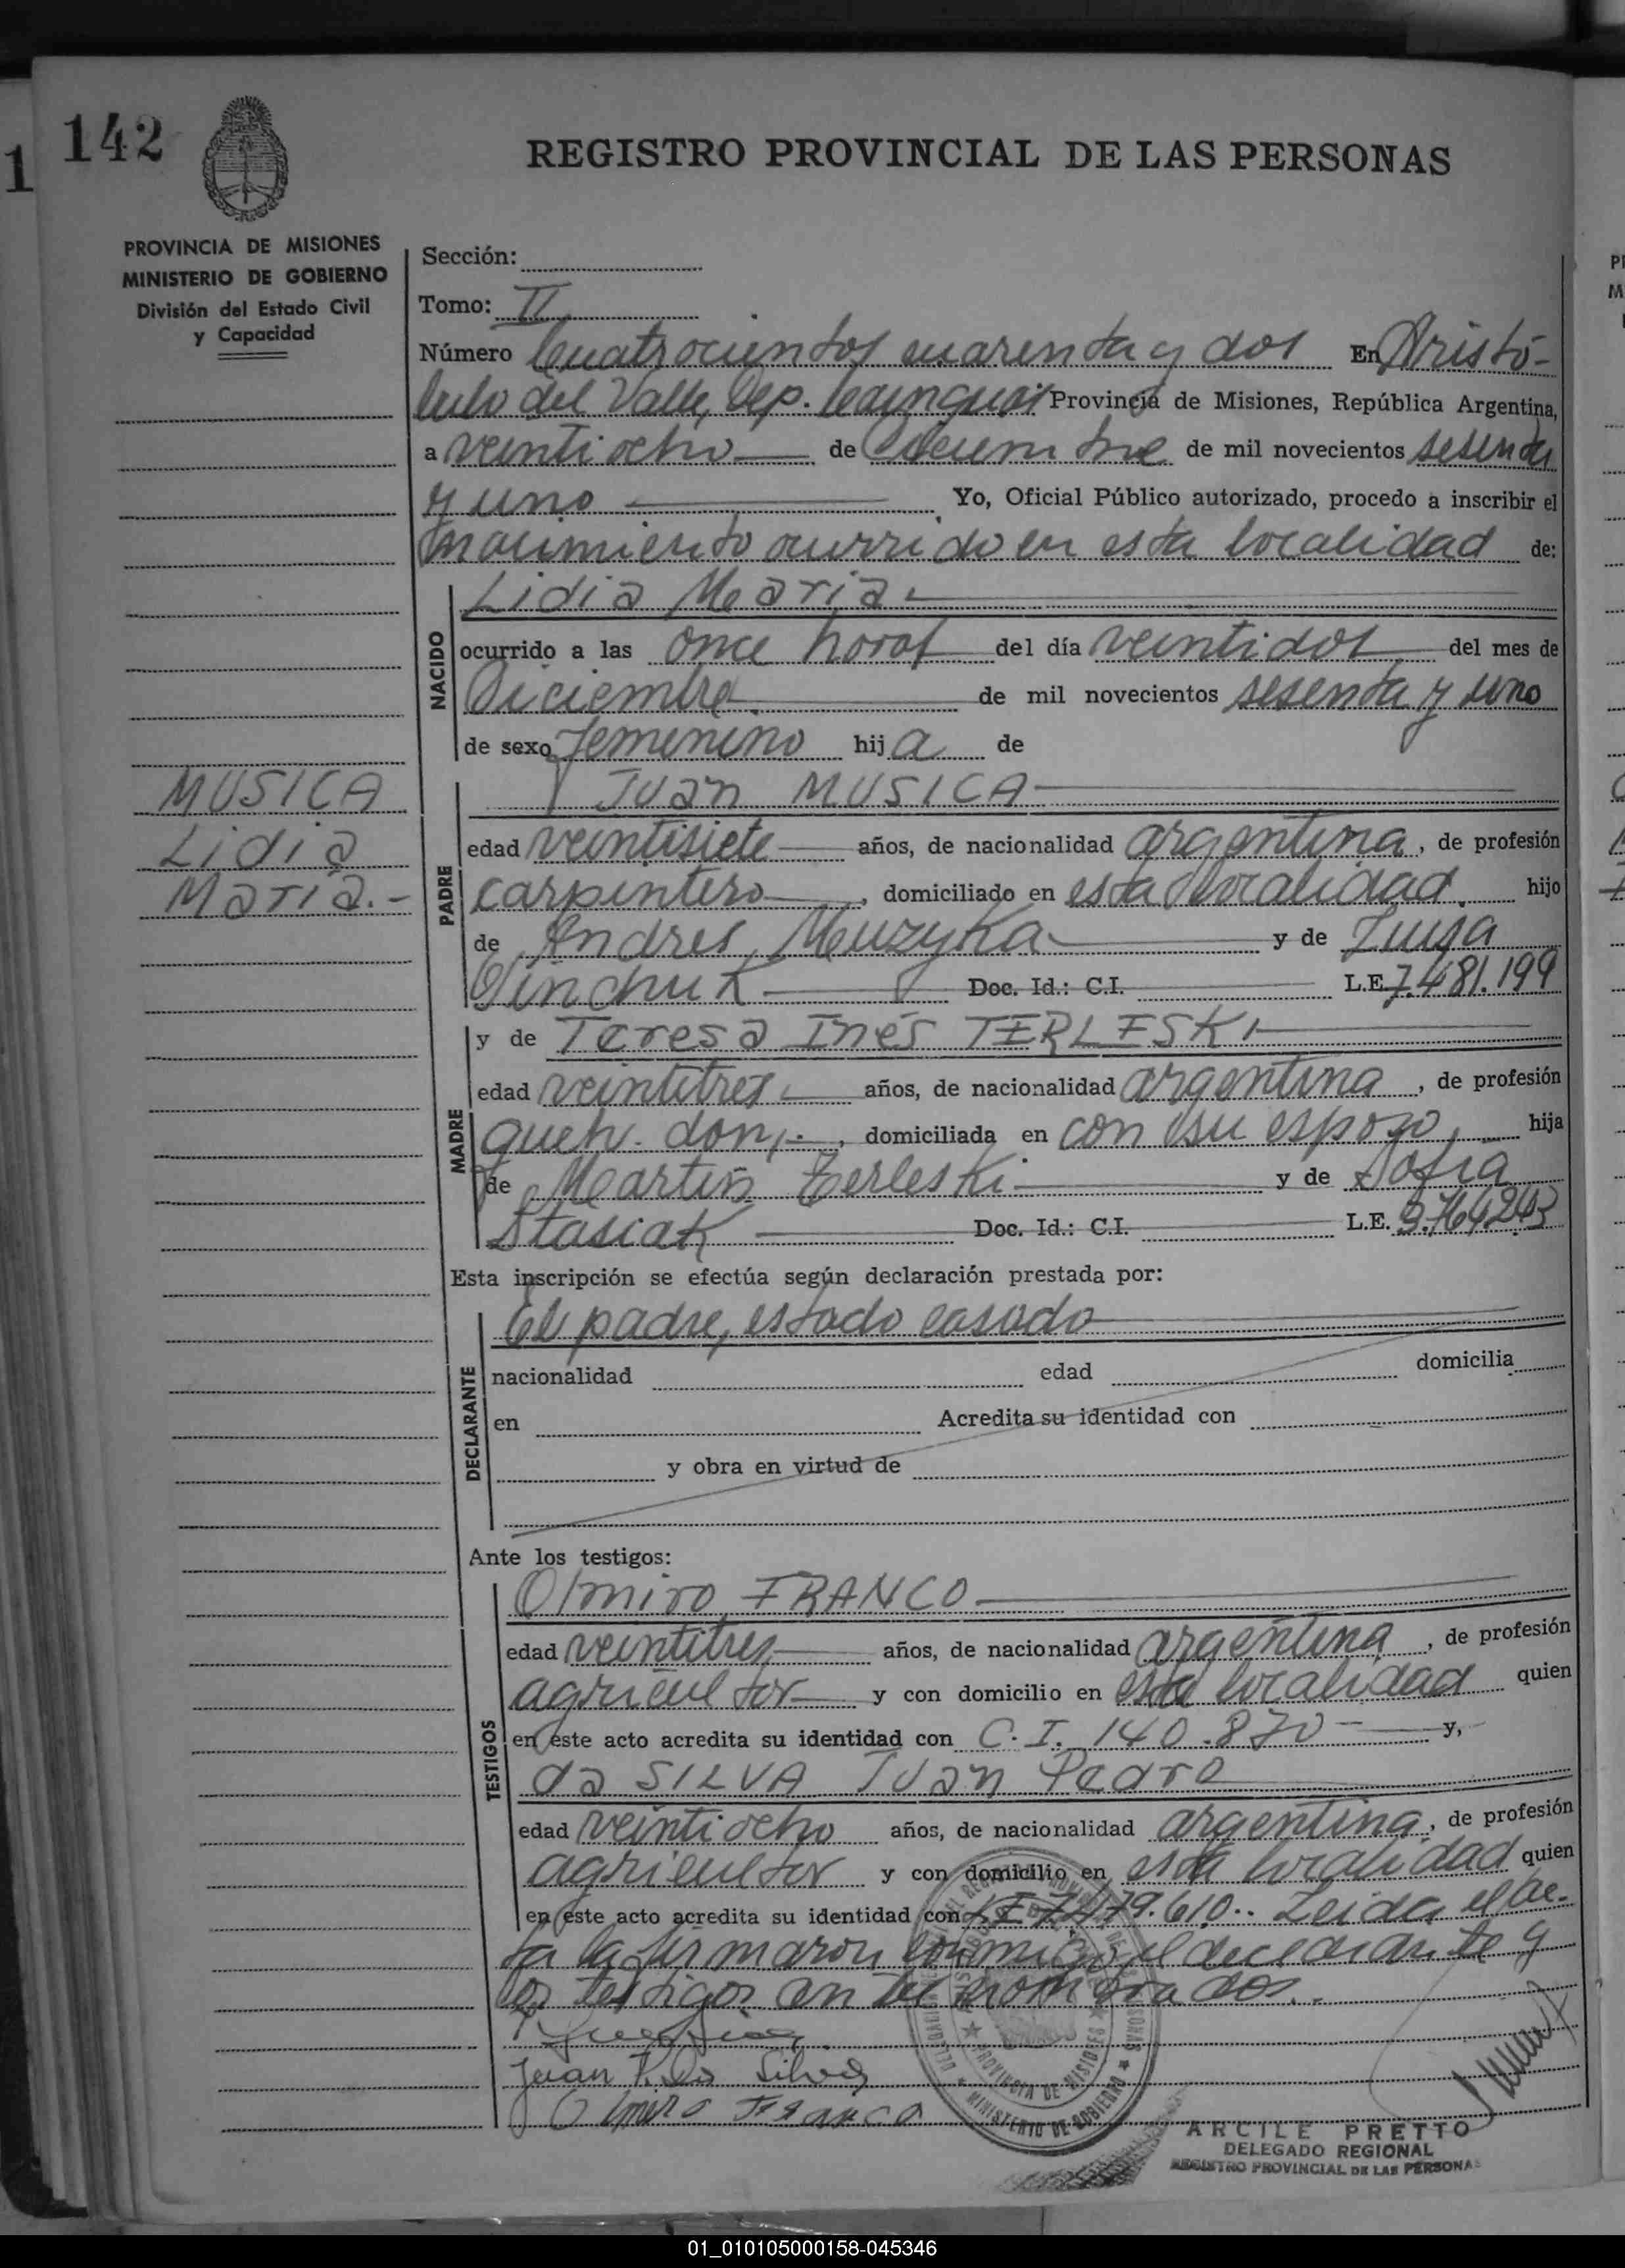 142
REGISTRO PROVINCIAL DE LAS PERSONAS
1
PROVINCIA DE MISIONES
MINISTERIO DE GOBIERNO
División del Estado Civil
y Capacidad
Sección:
Tomo: II
Número Cuatrocientos cuarenta y dos En Aristó-
bulo del Valle, Dep. Cainguás Provincia de Misiones, República Argentina,
a veintiocho de Diciembre de mil novecientos sesenta
y uno Yo, Oficial Público autorizado, procedo a inscribir el
nacimiento ocurrido en esta localidad de:
NACIDO
Lidia Maria
ocurrido a las once horas del día veintidos del mes de
Diciembre de mil novecientos sesenta y uno
de sexo femenino hija de
MUSICA
Lidia
María.-
PADRE
Juan MUSICA
edad veintisiete años, de nacionalidad argentina, de profesión
carpintero, domiciliado en esta localidad, hijo
de Andres Muzyka y de Luisa
Vinchuk Doc. Id.: C.I. L.E. 7.481.199
MADRE
y de Teresa Inés TERLESKI
edad veintitres años, de nacionalidad argentina, de profesión
queh. dom., domiciliada en con su esposo, hija
de Martin Terleski y de Sofia
Stasiak Doc. Id.: C.I. L.E.
Esta inscripción se efectúa según declaración prestada por:
DECLARANTE
El padre, estado casado
nacionalidad edad domicilia
en Acredita su identidad con
y obra en virtud de
Ante los testigos:
TESTIGOS
Olmiro FRANCO
edad veintitres años, de nacionalidad argentina, de profesión
agricultor y con domicilio en esta localidad quien
en este acto acredita su identidad con C.I. 140.870 y,
da SILVA Juan Pedro
edad veintiocho años, de nacionalidad argentina, de profesión
agricultor y con domicilio en esta localidad quien
en este acto acredita su identidad con LE 7.479.610.. Leida el ac-
ta la firmaron conmigo el declarante y
los testigos antes nombrados..
Juan P. Da Silva
Olmiro Franco
PROVINCIA DE MISIONES
MINISTERIO DE GOBIERNO
ARCILE PRETTO
DELEGADO REGIONAL
REGISTRO PROVINCIAL DE LAS PERSONAS
01_010105000158-045346